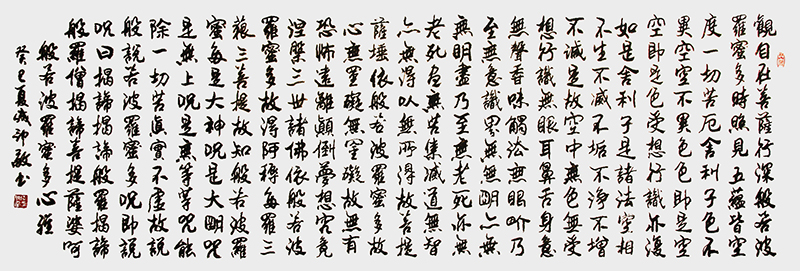 觀自在菩薩行深般若波
羅蜜多時照見五蘊皆空
度一切苦厄舍利子色不
異空空不異色色即是空
空即是色受想行識亦復
如是舍利子是諸法空相
不生不滅不垢不淨不增
不減是故空中無色無受
想行識無眼耳鼻舌身意
無聲香味觸法無眼界乃
至無意識界無無明亦無
無明盡乃至無老死亦無
老死盡無苦集滅道無智
亦無得以無所得故菩提
薩埵依般若波羅蜜多故
心無罣礙無罣礙故無有
恐怖遠離顛倒夢想究竟
涅槃三世諸佛依般若波
羅蜜多故得阿耨多羅三
藐三菩提故知般若波羅
蜜多是大神咒是大明咒
是無上咒是無等等咒能
除一切苦真實不虛故說
般說若波羅蜜多咒即說
咒曰揭諦揭諦般羅揭諦
般羅僧揭諦菩提薩婆呵
般若波羅蜜多心經
癸巳夏